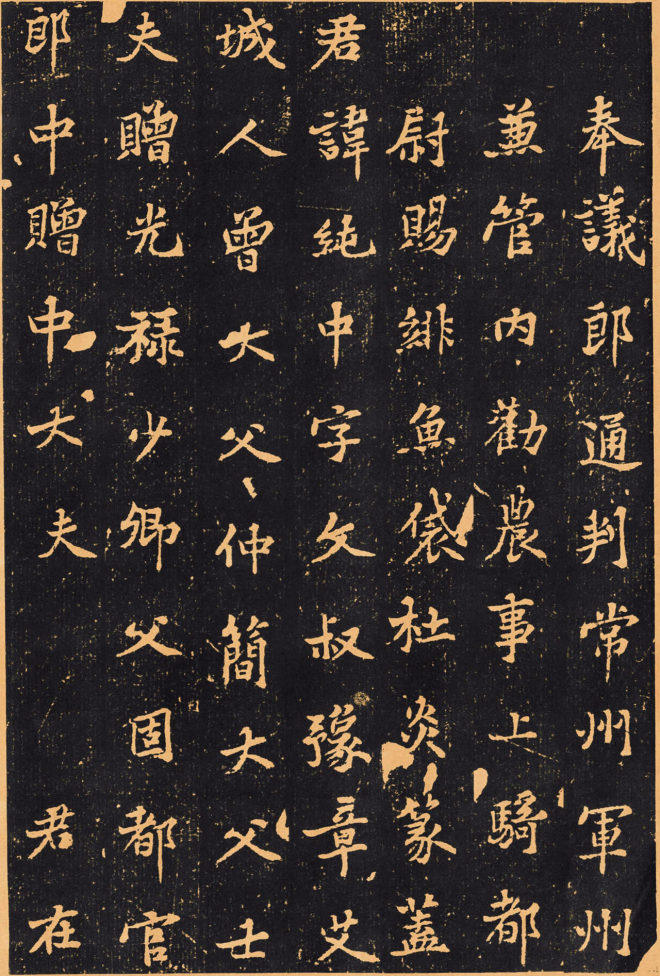 奉議郎通判常州軍州
兼管内勸農事上騎都
尉賜緋魚袋杜炎篆蓋
君諱純中字文叔豫章艾
城人曾大父〻仲簡大父士
夫贈光禄少卿父固都官
郎中贈中大夫 君在